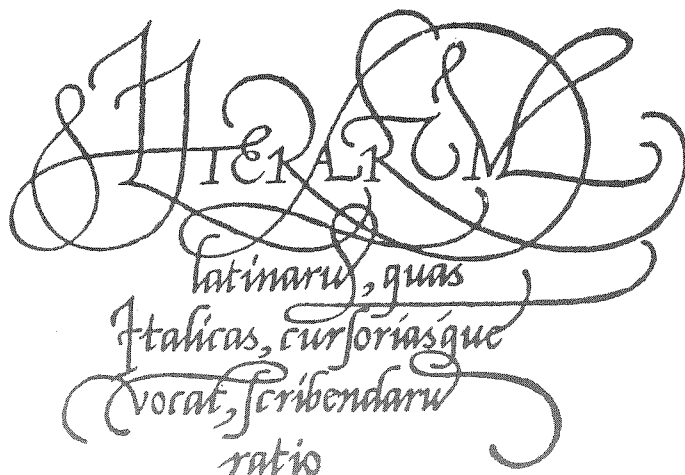 LITERARUM
latinaru, quas
Italicas, curſoriasque
vocāt, ſcribendaru
ratio